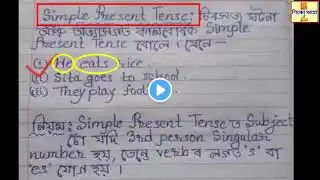 Simple Present Tense: চিৰসত্য ঘটনা
আৰু অভ্যাসগত কাৰ্যবোৰক Simple
Present Tense বোলে। যেনে—
(i) He eats rice.
(ii) Sita goes to school.
(iii) They play foot
নিয়ম: Simple Present Tense ত Subject
টো যদি 3rd person Singular
number হয়, তেন্তে verb ৰ লগত 's' বা
'es' যোগ হয়।